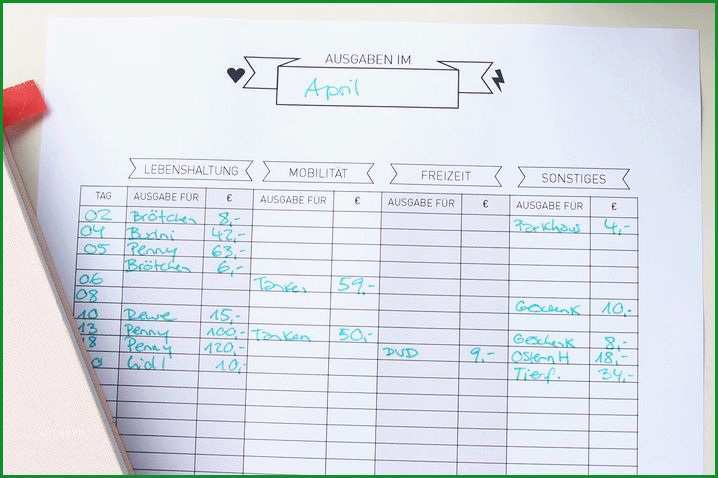 AUSGABEN IM
April
LEBENSHALTUNG MOBILITÄT FREIZEIT SONSTIGES
TAG AUSGABE FÜR € AUSGABE FÜR € AUSGABE FÜR € AUSGABE FÜR €
02 Brötchen 8,- Parkhaus 4,-
04 42,-
05 Penny 63,-
Brötchen 6,-
06 Tanken 59,-
08 Geschenk 10,-
10 Rewe 15,-
13 Penny 100,- Tanken 50,- Geschenk 8,-
18 Penny 120,- DVD 9,- Ostern H 18,-
Lidl 10,- Tierf. 34,-